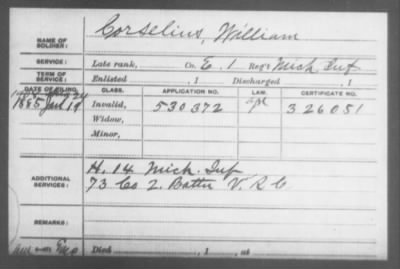 NAME OF SOLDIER: Corselius, William
SERVICE: Late rank, Co. E. 1 Reg't Mich. Inf
TERM OF SERVICE: Enlisted , 1 Discharged , 1
DATE OF FILING. CLASS. APPLICATION NO. LAW. CERTIFICATE NO.
1885 Jan 19 Invalid, 530372 326051
Widow,
Minor,
H. 14 Mich. Inf
ADDITIONAL SERVICES: 73 Co 2. Battn V. R. C
REMARKS:
Died , 1 , at